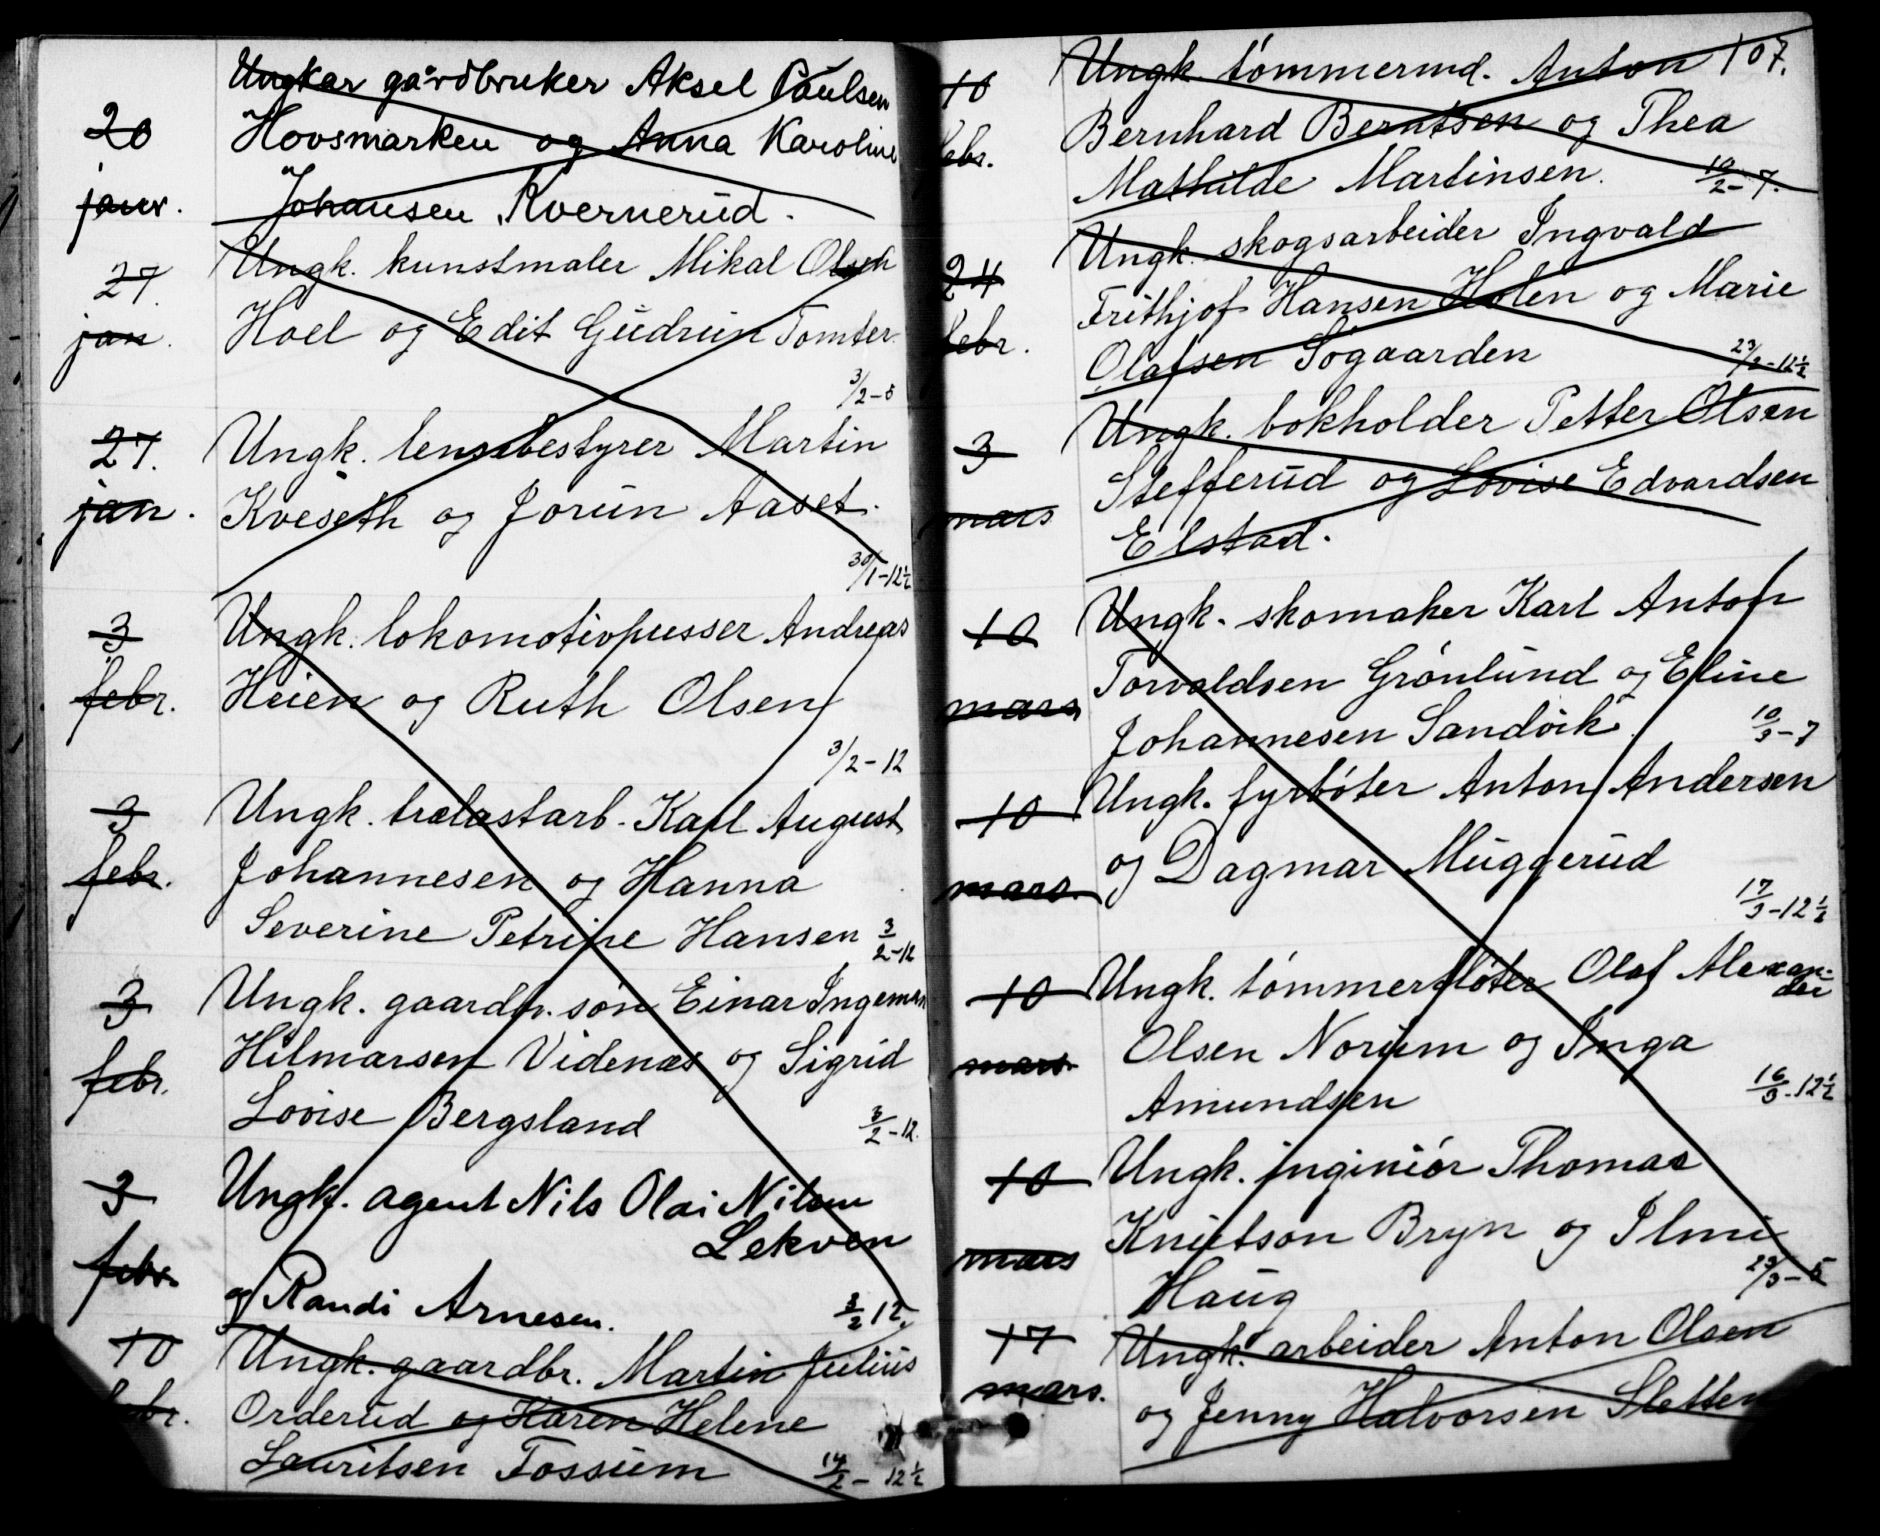 Ungkar gårdbruker Aksel Paulsen
20 Hovsmarken og Anna Karoline
janr. Johansen Kvernerud.
27. Ungk. kunstmaler Mikal
jan. Hoel og Edit Gudrun Tomter.
3/2-5
27. Ungk. lensbestyrer Martin
jan. Kveseth og Jorun Aaset.
30/1-12½
3 Ungk. lokomotivpusser Andreas
febr. Heien og Ruth Olsen
3/2-12
3 Ungk. trælastarb. Karl August
febr. Johannesen og Hanna
Severine Petrine Hansen 3/2-12
3 Ungk. gaardbr. søn Einar Ingeman
febr. Hilmarsen Videnæs og Sigrid
Lovise Bergsland 3/2-12.
3 Ungk. agent Nils Olai Nilsen
Lekven
febr. og Randi Arnesen. 3/2 12.
10 Ungk. gaardbr. Martin Julius
febr. Orderud og Karen Helene
Lauritsen Fossum 14/2-12½
107.
10 Ungk. tömmermd. Anton
febr. Bernhard Berntsen og Thea
Mathilde Martinsen. 10/2-7.
24 Ungk. skogsarbeider Ingvald
febr. Frithjof Hansen Holen og Marie
Olafsen Sogaarden 23/2-12½
3 Ungk. bokholder Petter Olsen
mars Stefferud og Lovise Edvardsen
Elstad.
10 Ungk. skomaker Karl Anton
mars Torvaldsen Grönlund og Eline
Johannesen Sandvik. 10/3-7
10 Ungk. fyrböter Anton Andersen
mars. og Dagmar Muggerud
17/3-12½
10 Ungk. tömmerfløter Olaf Alexander
mars. Olsen Norum og Inga
Amundsen 16/3-12½
10 Ungk. inginiör Thomas
mars Knutson Bryn og Ilmi
Haug 23/3-5
17 Ungk. arbeider Anton Olsen
mars. og Jenny Halvorsen Sletten